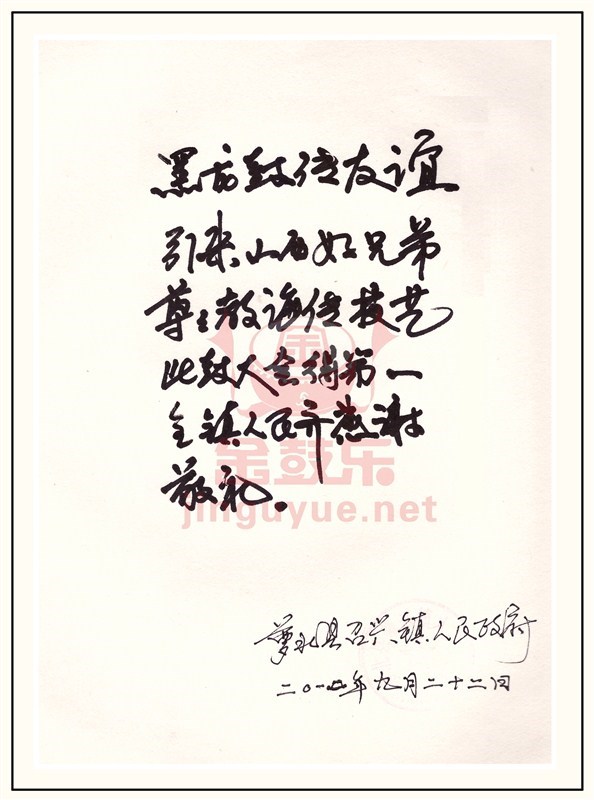 鼓传友谊
引来山西好兄弟
尊々教诲传技艺
此鼓大会得第一
全镇人民齐感谢
敬礼。
金
金鼓乐
jinguyue.net
萝北县召兴镇人民政府
二〇一〇年九月二十二日